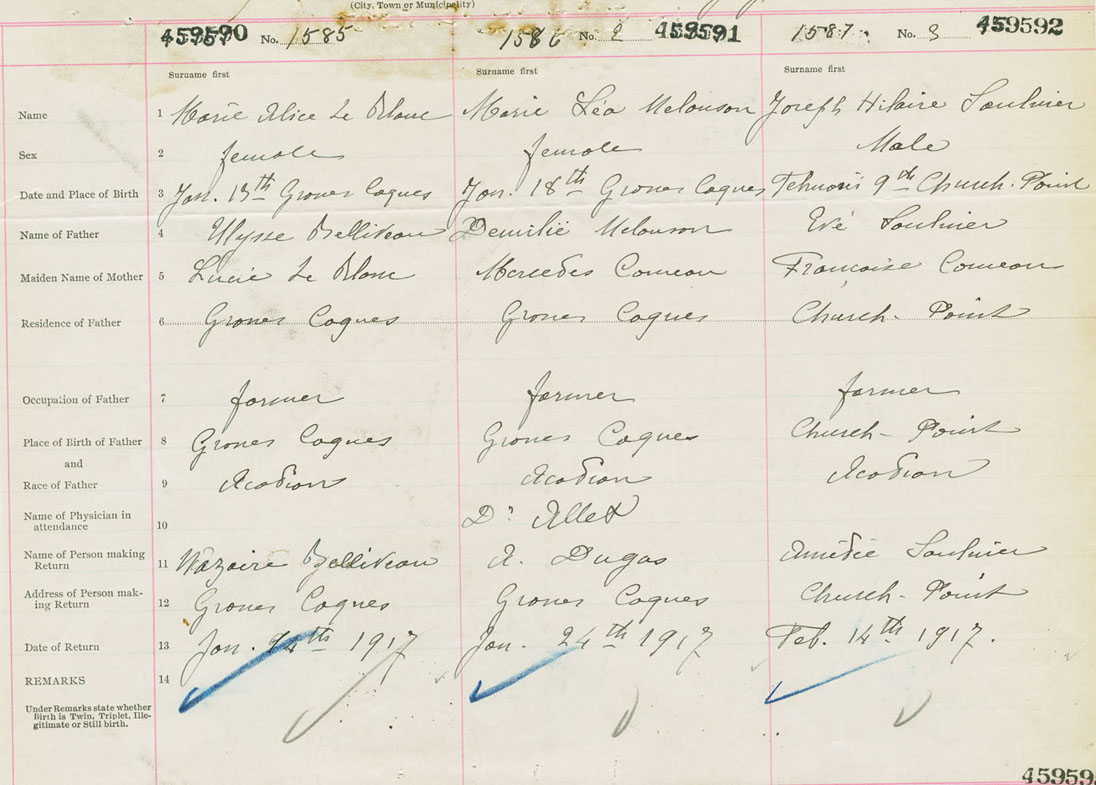 (City, Town or Municipality)
459590 No. 1585 1586 No. 2 459591 1587 No. 3 459592
Surname first Surname first Surname first
Name 1 Marie Alice Le Blanc Marie Léa Melanson Joseph Hilaire Saulnier
Sex 2 female female Male
Date and Place of Birth 3 Jan. 13th Grones Coques Jan. 18th Grones Coques 9th Church-Point
Name of Father 4 Ulysse Belliveau Melanson Saulnier
Maiden Name of Mother 5 Lucie Le Blanc Mercedes Comeau Françoise Comeau
Residence of Father 6 Grones Coques Grones Coques Church-Point
Occupation of Father 7 farmer farmer farmer
Place of Birth of Father 8 Grones Coques Grones Coques Church-Point
and
Race of Father 9 Acadian Acadian Acadian
Name of Physician in
attendance 10 Dr
Name of Person making
Return 11 Nazaire Belliveau A. Dugas Amédie Saulnier
Address of Person mak-
ing Return 12 Grones Coques Grones Coques Church-Point
Date of Return 13 Jan. 24th 1917 Jan. 24th 1917 Feb. 14th 1917.
REMARKS 14
Under Remarks state whether
Birth is Twin, Triplet, Ille-
gitimate or Still birth.